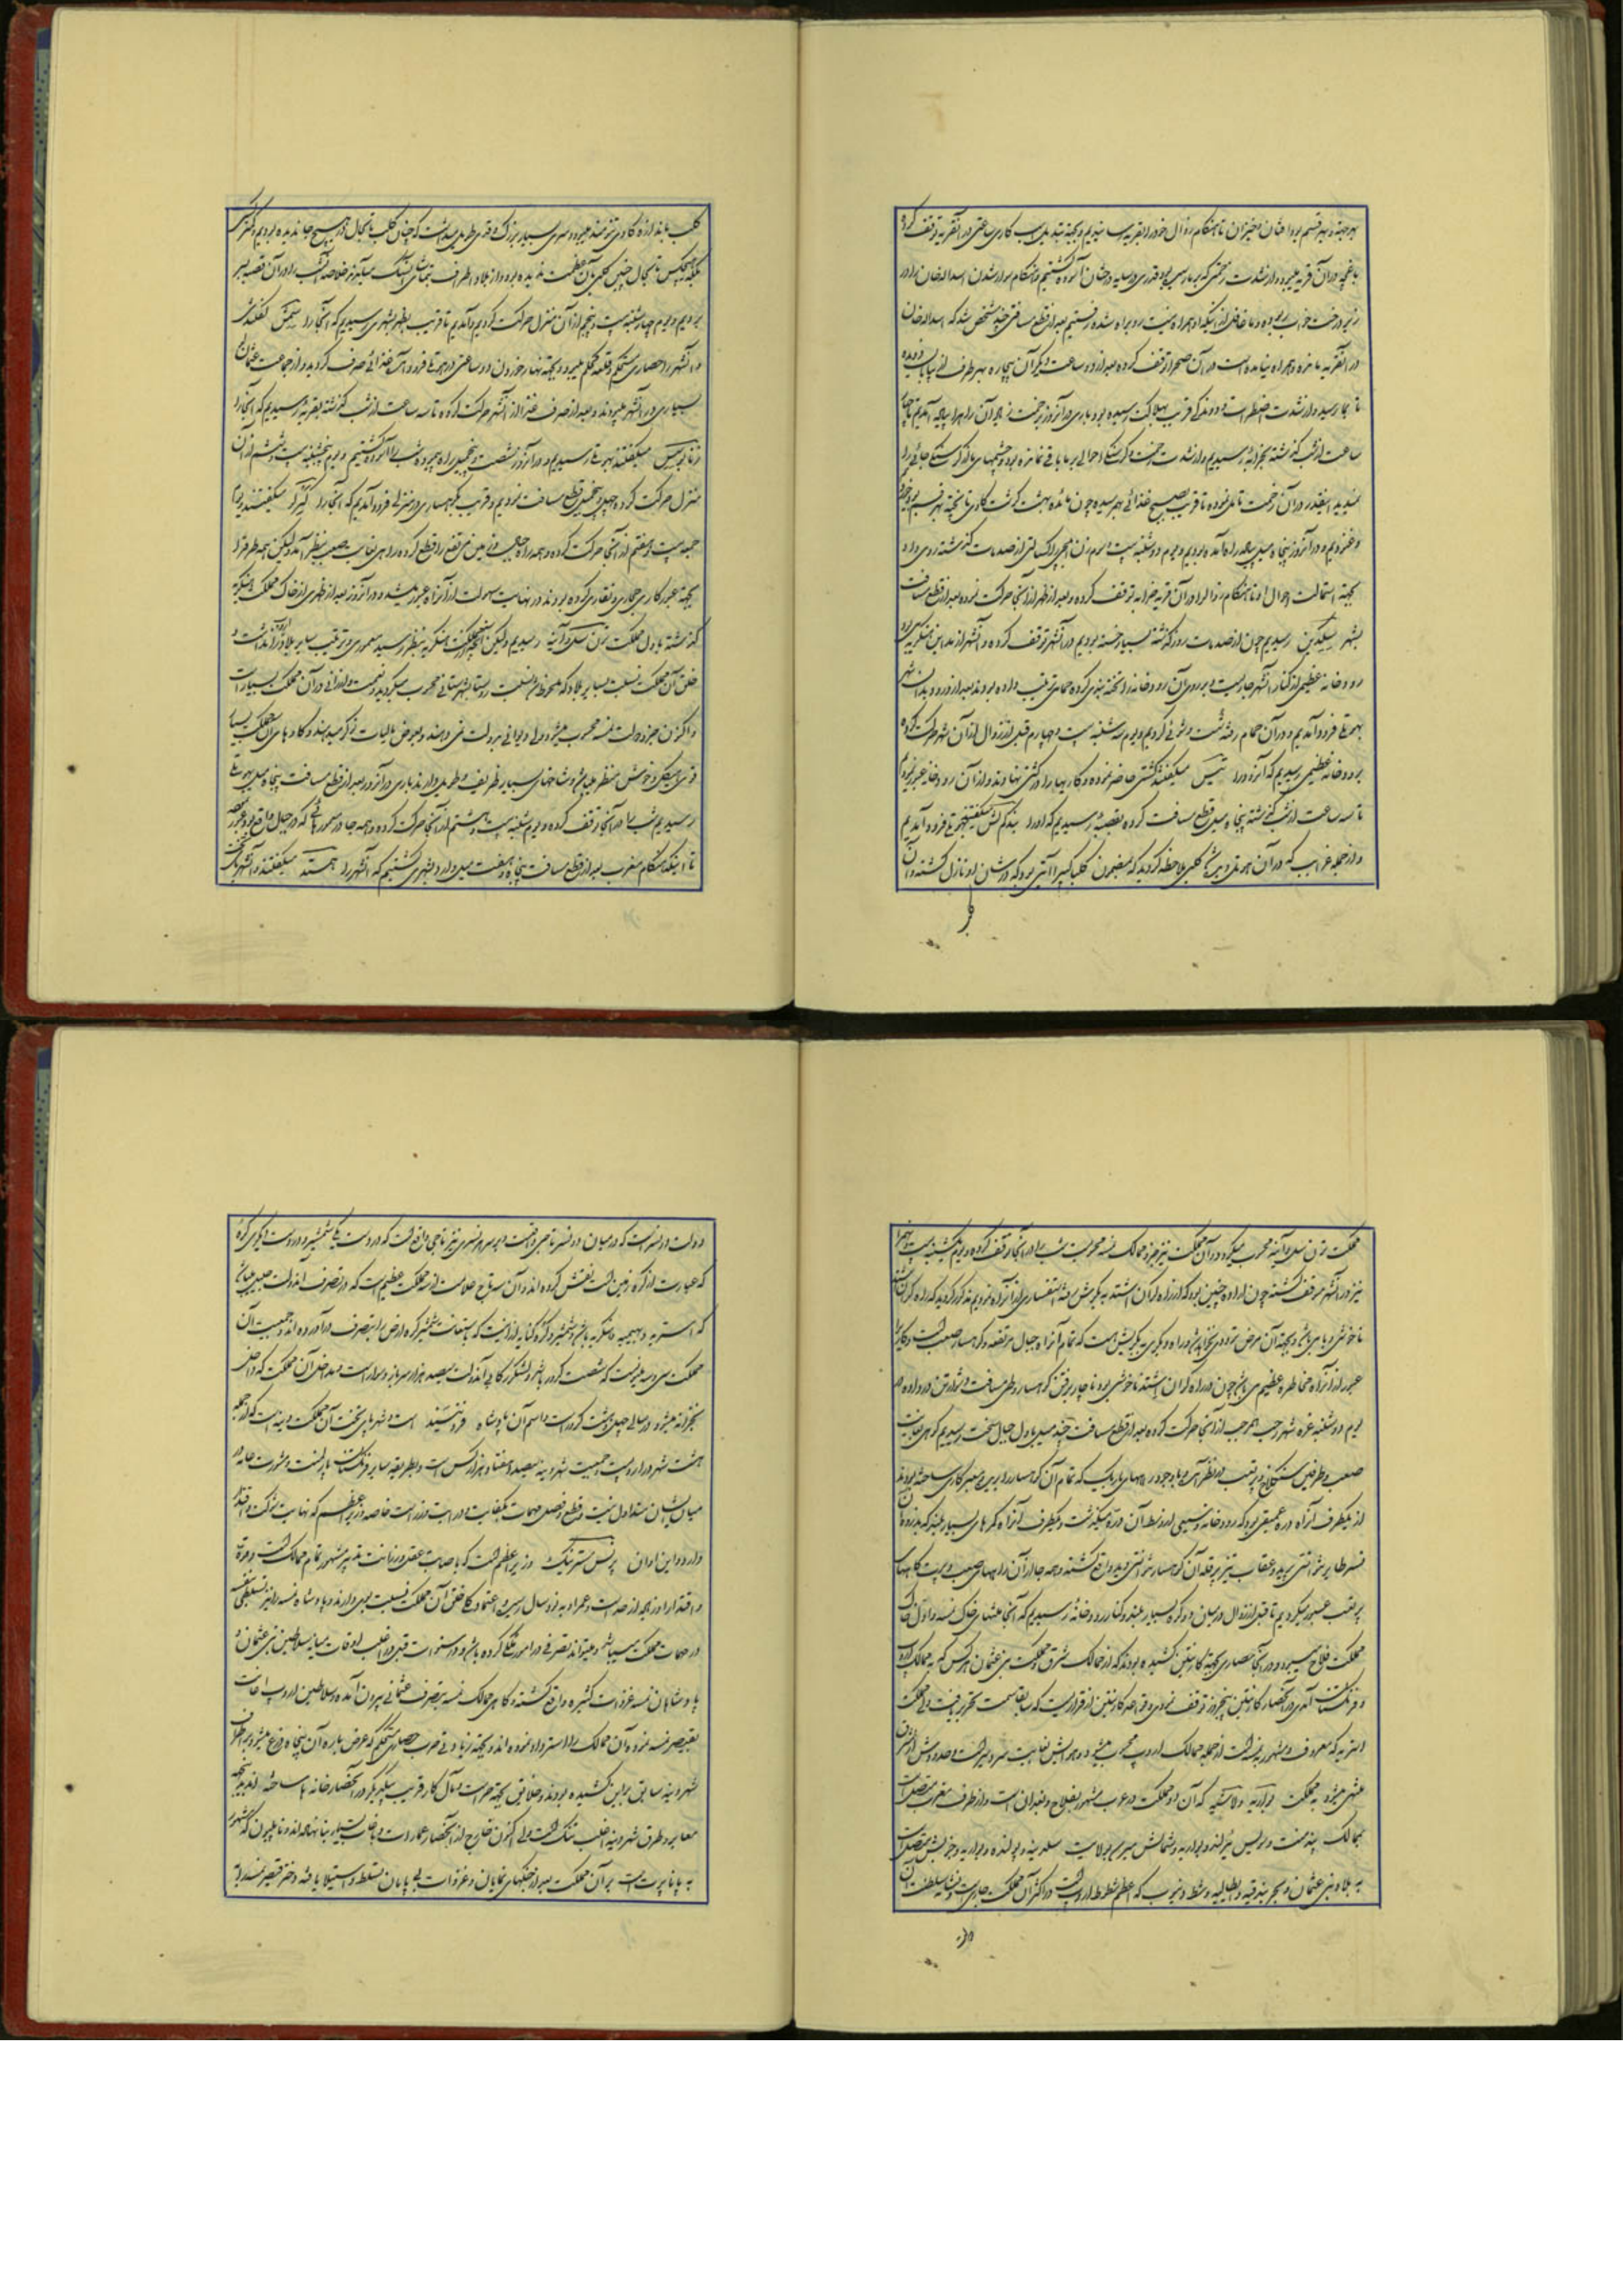 بهر جهة و بهر قسم بود افتان و خیزان تا هنگام زوال خود را بقریه رسانیدیم و بجهة تبدیل اسب کاری ساعتی در آنقریه توقف کرده
باغچه در آن قریه بود و از شدت زحمتی که بما رسیده بود قدری در سایه درختان آسوده گشتیم و هنگام سوار شدن اسدالله خان را در
زیر درخت خواب ربوده و ما غافل از اینکه او همراه نیست رو براه شده رفتیم بعد از قطع مسافتی چند مشخص شد که اسدالله خان
در آنقریه مانده و همراه نیامده است در آن صحرا توقف کرده بعد از دو ساعت دیگر آن بیچاره بهر طرف آن بیابان دویده
تا بما رسید و از شدت اضطراب و دوندگی قریب بهلاکت رسیده بود باری در آنروز بزحمت زیاد آن راه را پیاده آمدیم تا چهار
ساعت از شب گذشته بخرابه رسیدیم و از شدت زحمت و گرسنگی احوالی بر ما باقی نمانده بود و چشمهای ما از گرسنگی جائی را
نمیدید آنقدر در آن زحمت تامل نموده تا قریب بصبح غذائی بهم رسید چون مائده بهشت گوشت گاوی نا پخته بهر قسم بود خورده
و غنودیم و در آنروز پنجاه میل پیاده راه آمده بودیم و یوم دوشنبه بیست و سوم زن انجیرا کسالتی از صدمات گذشته روی داد
بجهة استمالت احوال او تا هنگام زوال در آن قریه خرابه توقف کرده و بعد از ظهر از آنجا حرکت نموده بعد از قطع مسافت
بشهر سکدین رسیدیم چون از صدمات روز گذشته بسیار خسته بودیم در آنشهر توقف کرده و آنشهر از بلاد این هنگریه بود
رودخانه عظیمی از کنار آنشهر جاریست و بر روی آن رودخانه از تخته بندی کرده حمامی ترتیب داده بودند بعد از ورود بدان شهر
بهوتلی فرود آمدیم و در آن حمام رفته شست و شوئی کردیم و یوم سه شنبه بیست و چهارم قبل از زوال از آن شهر حرکت کرده
برودخانه عظیمی رسیدیم که آنرود را تیس میگفتند کشتی حاضر نموده و کاریها را در کشتی نهادند و از آن رودخانه عبور نمودیم
تا سه ساعت از شب گذشته پنجاه میل قطع مسافت کرده بقصبه رسیدیم که او را میگفتند بهوتلی فرود آمدیم
و از جمله غرایب که در آن هوتل دیده شد کلبی ملاحظه گردید که بمضمون کلبا کبیرا آیتی بود که در شان او نازل گشته و آن
کلب باندازه گاوی تنومند میبود و سری بسیار بزرگ و قدی طویل داشت که چنان کلب تا بحال در هیچ جا ندیده بودیم و کسی
بلکه هیچکس تا بحال چنین کلبی بآن عظمت ندیده بود و از بلاد اطراف بتماشای آن سگ میآیند خلاصه آنشب را در آن قصبه بسر
بردیم و یوم چهارشنبه بیست و پنجم از آن منزل حرکت کردیم و آمدیم تا قریب بظهر بشهری رسیدیم که آنجا را میگفتند
و آنشهر را حصاری مستحکم و قلعه محکم میبود و بجهة نهار خوردن دو ساعتی در هوتلی فرود و آش غذائی صرف گردید و از جماعت عثمانلو
بسیاری در آنشهر میبودند و بعد از صرف غذا از آنشهر حرکت کرده تا سه ساعت از شب گذشته بقریه رسیدیم که آنجا را
میگفتند بهوتلی رسیدیم و در آنروز شصت و پنج میل راه پیموده شب را آسوده گشتیم و یوم پنجشنبه بیست و ششم از آن
منزل حرکت کرده چهل و پنج میل قطع مسافت نمودیم و قریب بکوهساری در منزلی فرود آمدیم که آنجا را میگفتند یوم
جمعه بیست و هفتم از آنجا حرکت کرده و همه راه جبلهای مرتفع را قطع کرده راهی بغایت صعب بنظر آمد ولیکن همه طرق را
بجهة عبور کاری حجاری و نقاری کرده بودند در نهایت سهولت از آنراه عبور میشد و در آنروز بعد از ظهری از خاک مملکت هنگریه
گذشته باول مملکت ترن سلوانیه رسیدیم ولیکن آنچه از مملکت هنگریه بنظر رسید معموری و ترتیب سایر بلاد را نداشت و
خلق آن مملکت نسبت بسایر بلاد که ملحوظ شد روستا و شهرستانی محسوب میگردید و نعمت و ارزانی در آن مملکت بسیار است
و اکنون جزو دولت نمسه محسوب میشود ولی دیوانی بدولت نمی دهند و بعوض مالیات نوکر میدهند و گاوهای آن مملکت بسیار
قوی هیکل و خوش منظر میباشد و شاخهای بسیار ظریف و طویل دارند باری در آنروز بعد از قطع مسافت پنجاه میل بهوتلی
رسیدیم شب را در آنجا توقف کرده و یوم شنبه بیست و هشتم از آنجا حرکت کرده و همه جا در معموره هائی که در جبال واقع بود عبور نموده
تا اینکه هنگام مغرب بعد از قطع مسافت پنجاه و هفت میل وارد بشهری گشتیم که آنشهر را میگفتند و آنشهر پای تخت
مملکت ترن سلوانیه محسوب میگردد و در آن مملکت نیز جزو ممالک نمسه محسوبست شب را در آنجا توقف کرده و یوم یکشنبه بیست و نهم را
نیز در آنشهر متوقف گشته چون اراده چنین بود که از راه لران اشتد به بکورش رفته استفساری از آنراه نمودیم مذکور گردید که در راه لران اشتد
ناخوشی وبا میباشد و بجهة آن مرض تردد نمیخواهد و راه دیگری به بکریش هست که تمام آنراه جبال مرتفعه و کوهسار صعب است و کاریرا
عبور از آنراه مخاطره عظیم میباشد چون در راه لران اشتد ناخوشی بود ناچار برفتن کوهسار و طی مسافت دشوار تن در داده و
یوم دوشنبه غره شهر رجب المرجب از آنجا حرکت کرده بعد از قطع مسافت چند میل باول جبال سخت رسیدیم کوهی بغایت
صعب و طرفین سنگلاخ و پر تعب در نظر آمد و با وجود راههای باریک که تمام آن کوهسار را بریده و معبر کاری ساخته بودند
از یکطرف آنراه دره عمیقی بود که رودخانه وسیعی از وسط آن دره میگذشت و یکطرف آنراه کوههای بسیار بلند که بذروه آن
نسر طایر نتوانستی پرید و عقاب تیز پر بقله آن کوهسار نتوانستی دید واقع گشته و همه جا از آن راههای صعب و پرتگاههای
پر تعب عبور میکردیم تا قبل از زوال در میان دو کوه بسیار بلند و کنار رودخانه رسیدیم که آنجا منتهای خاک نمسه و اول خاک
مملکت فلاخ میبود و در آنجا حصاری بجهة کارنتین کشیده بودند که از ممالک شرق و مملکت بنی عثمان هر کس که به ممالک اروپ
و فرنگستان آمدی در آنحصار کارنتین پنجروز توقف نمودی و قاعده کارنتین از قراریست که سابقا سمت تحریر یافت ولی مملکت
استریه که معروف و مشهور به نمسه است از جمله ممالک اروپ محسوب میشود و هوایش بغایت سردسیر است و حدودش از شرق
منتهی میشود به مملکت و لاشیه که آن دو مملکت در عرب مشهور بفلاخ و بغدان است و از طرف مغرب متصل است
بممالک و سویس و بواریه و شمالش میرسد بولایت سلدینه و پولنده و بواریه و جنوبش متصل است
به بلاد بنی عثمان و بحر بندقیه و ایطالیه و شط دنیوب که اعظم شطوط اروپ است در اکثر آن مملکت جاریست و نشانه سلطنت آن
دولت دو نسر است که در میان دو نسر تاجی واقعست و بر سر هر نسری نیز تاجی واقع است که در دست یکی شمشیر و در دست دیگری کره
که عبارت از کره زمین است نقش کرده اند و آن سه تاج علامت از سه مملکت عظیم است که در تصرف آندولت میباشد
که استریه و بهیمیه و هنگریه باشد و شمشیر و کره کنایه از آنست که باستعانت شمشیر کره ارض را بتصرف در آورده اند و جمعیت آن
مملکت سی و دو ملیونست که شصت کرور باشد و لشکر رکابی آندولت سیصد هزار سرباز و سوار است و مداخل آن مملکت که داخل
خزانه میشود در سالی چهل و هشت کرور است و اسم آن پادشاه است و شهر پای تخت آن مملکت وینه است که از جمله
هشت شهر در اروپست و جمعیت شهر وینه سیصد و هفتاد و هزار کس است و بطریقه سایر فرنگستان پارلمنت و مشورت خانه در
میان ایشان متداول نیست و قطع و فصل مهمات بکفایت و درایت وزراست خاصه وزیر اعظم که نهایت تمکن و اقتدار
دارد و در این اوان پرنس مترنیک وزیر اعظم است که باصابت عقل و رزانت تدبیر مشهور تمام ممالک است و عزت
و اقتدار او زیاده از حد است و عمر او به نود سال رسیده و اعتماد کلی خلق آن مملکت نسبت بوی دارند و پادشاه نمسه را نیز تسلطی
در مهمات مملکت میباشد و میتواند تصرفی در امور ملکی کرده باشد و در سنوات قبل در اغلب اوقات میانه سلاطین بنی عثمان و
پادشاهان نمسه غزوات کثیره واقع گشته و گاهی ممالک نمسه بتصرف عثمانی بیرون آمده و سلاطین اروپ اعانت
بقیصر نمسه نموده آن ممالک را استرداد نموده اند و بجهة زیادتی حرب حصاری مستحکم که عرض باره آن پنجاه ذرع میشود بر اطراف
شهر وینه سابق بر این کشیده بودند و خلایق بجهة حراست مال و کار قریب بیکدیگر در آنحصار خانه ها ساخته اند بدینجهة
معابر و طرق شهر وینه اغلب تنگ است ولی اکنون خارج از آنحصار عمارات و باغات بسیار بنا نهاده اند و ناپلیون که مشهور
به پاناپورت است بر آن مملکت بعد از جنگهای نمایان و غزوات بی پایان تسلط و استیلا یافته و دختر قیصر نمسه را به